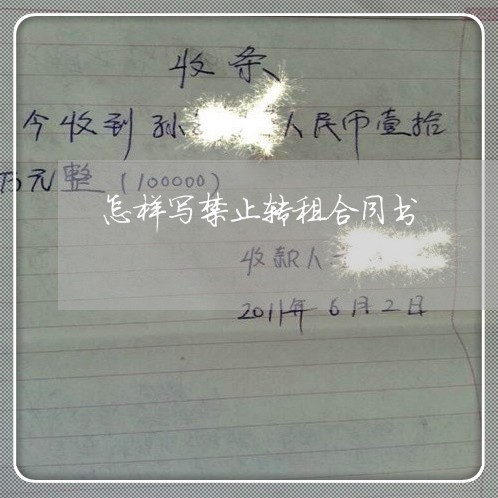 收条
今收到孙 人民币壹拾
万元整（100000）
怎样写禁止转租合同书
收款人
2011年6月2日